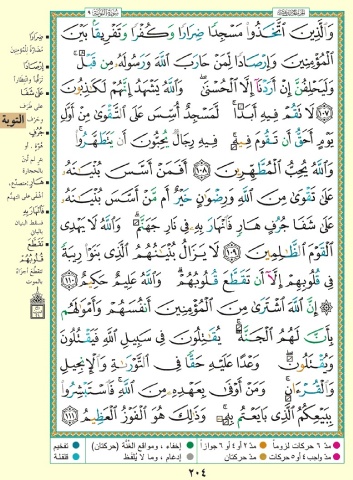 وَٱلَّذِينَ ٱتَّخَذُوا۟ مَسْجِدًا ضِرَارًا وَكُفْرًا وَتَفْرِيقًۢا بَيْنَ
ٱلْمُؤْمِنِينَ وَإِرْصَادًا لِّمَنْ حَارَبَ ٱللَّهَ وَرَسُولَهُۥ مِن قَبْلُ ۚ
وَلَيَحْلِفُنَّ إِنْ أَرَدْنَآ إِلَّا ٱلْحُسْنَىٰ ۖ وَٱللَّهُ يَشْهَدُ إِنَّهُمْ لَكَـٰذِبُونَ
١٠٧ لَا تَقُمْ فِيهِ أَبَدًا ۚ لَّمَسْجِدٌ أُسِّسَ عَلَى ٱلتَّقْوَىٰ مِنْ أَوَّلِ
يَوْمٍ أَحَقُّ أَن تَقُومَ فِيهِ ۚ فِيهِ رِجَالٌ يُحِبُّونَ أَن يَتَطَهَّرُوا۟ ۚ
وَٱللَّهُ يُحِبُّ ٱلْمُطَّهِّرِينَ ١٠٨ أَفَمَنْ أَسَّسَ بُنْيَـٰنَهُۥ
عَلَىٰ تَقْوَىٰ مِنَ ٱللَّهِ وَرِضْوَٰنٍ خَيْرٌ أَم مَّنْ أَسَّسَ بُنْيَـٰنَهُۥ
عَلَىٰ شَفَا جُرُفٍ هَارٍ فَٱنْهَارَ بِهِۦ فِى نَارِ جَهَنَّمَ ۗ وَٱللَّهُ لَا يَهْدِى
ٱلْقَوْمَ ٱلظَّـٰلِمِينَ ١٠٩ لَا يَزَالُ بُنْيَـٰنُهُمُ ٱلَّذِى بَنَوْا۟ رِيبَةً
فِى قُلُوبِهِمْ إِلَّآ أَن تَقَطَّعَ قُلُوبُهُمْ ۗ وَٱللَّهُ عَلِيمٌ حَكِيمٌ ١١٠
۞ إِنَّ ٱللَّهَ ٱشْتَرَىٰ مِنَ ٱلْمُؤْمِنِينَ أَنفُسَهُمْ وَأَمْوَٰلَهُم
بِأَنَّ لَهُمُ ٱلْجَنَّةَ ۚ يُقَـٰتِلُونَ فِى سَبِيلِ ٱللَّهِ فَيَقْتُلُونَ
وَيُقْتَلُونَ ۖ وَعْدًا عَلَيْهِ حَقًّا فِى ٱلتَّوْرَىٰةِ وَٱلْإِنجِيلِ
وَٱلْقُرْءَانِ ۚ وَمَنْ أَوْفَىٰ بِعَهْدِهِۦ مِنَ ٱللَّهِ ۚ فَٱسْتَبْشِرُوا۟
بِبَيْعِكُمُ ٱلَّذِى بَايَعْتُم بِهِۦ ۚ وَذَٰلِكَ هُوَ ٱلْفَوْزُ ٱلْعَظِيمُ ١١١
ضِرَارًا
مضارّة للمؤمنين
إِرْصَادًا
ترقبًا وانتظارًا
عَلَى شَفَا
على طرف
التوبة
جُرُفٍ
هَارٍ
فَانْهَارَ بِهِ
تَقَطَّعَ
قُلُوبُهُمْ
تتقطع أجزاء
بالموت
مدّ ٦ حركات لزوماً مدّ ٢ أو ٤ أو ٦ جوازاً إخفاء، ومواقع الغُنَّة (حركتان) تفخيم
مدّ واجب ٤ أو ٥ حركات مدّ حركتان إدغام، وما لا يُلفَظ قلقلة
٢٠٤